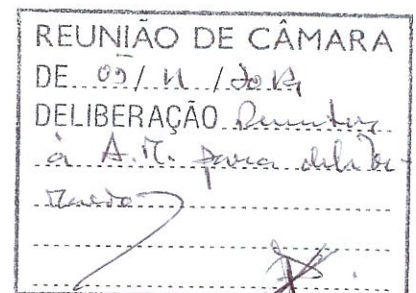 REUNIÃO DE CÂMARA
DE 05/11/2013
DELIBERAÇÃO Remeter
à A.M. para delibe-
ração